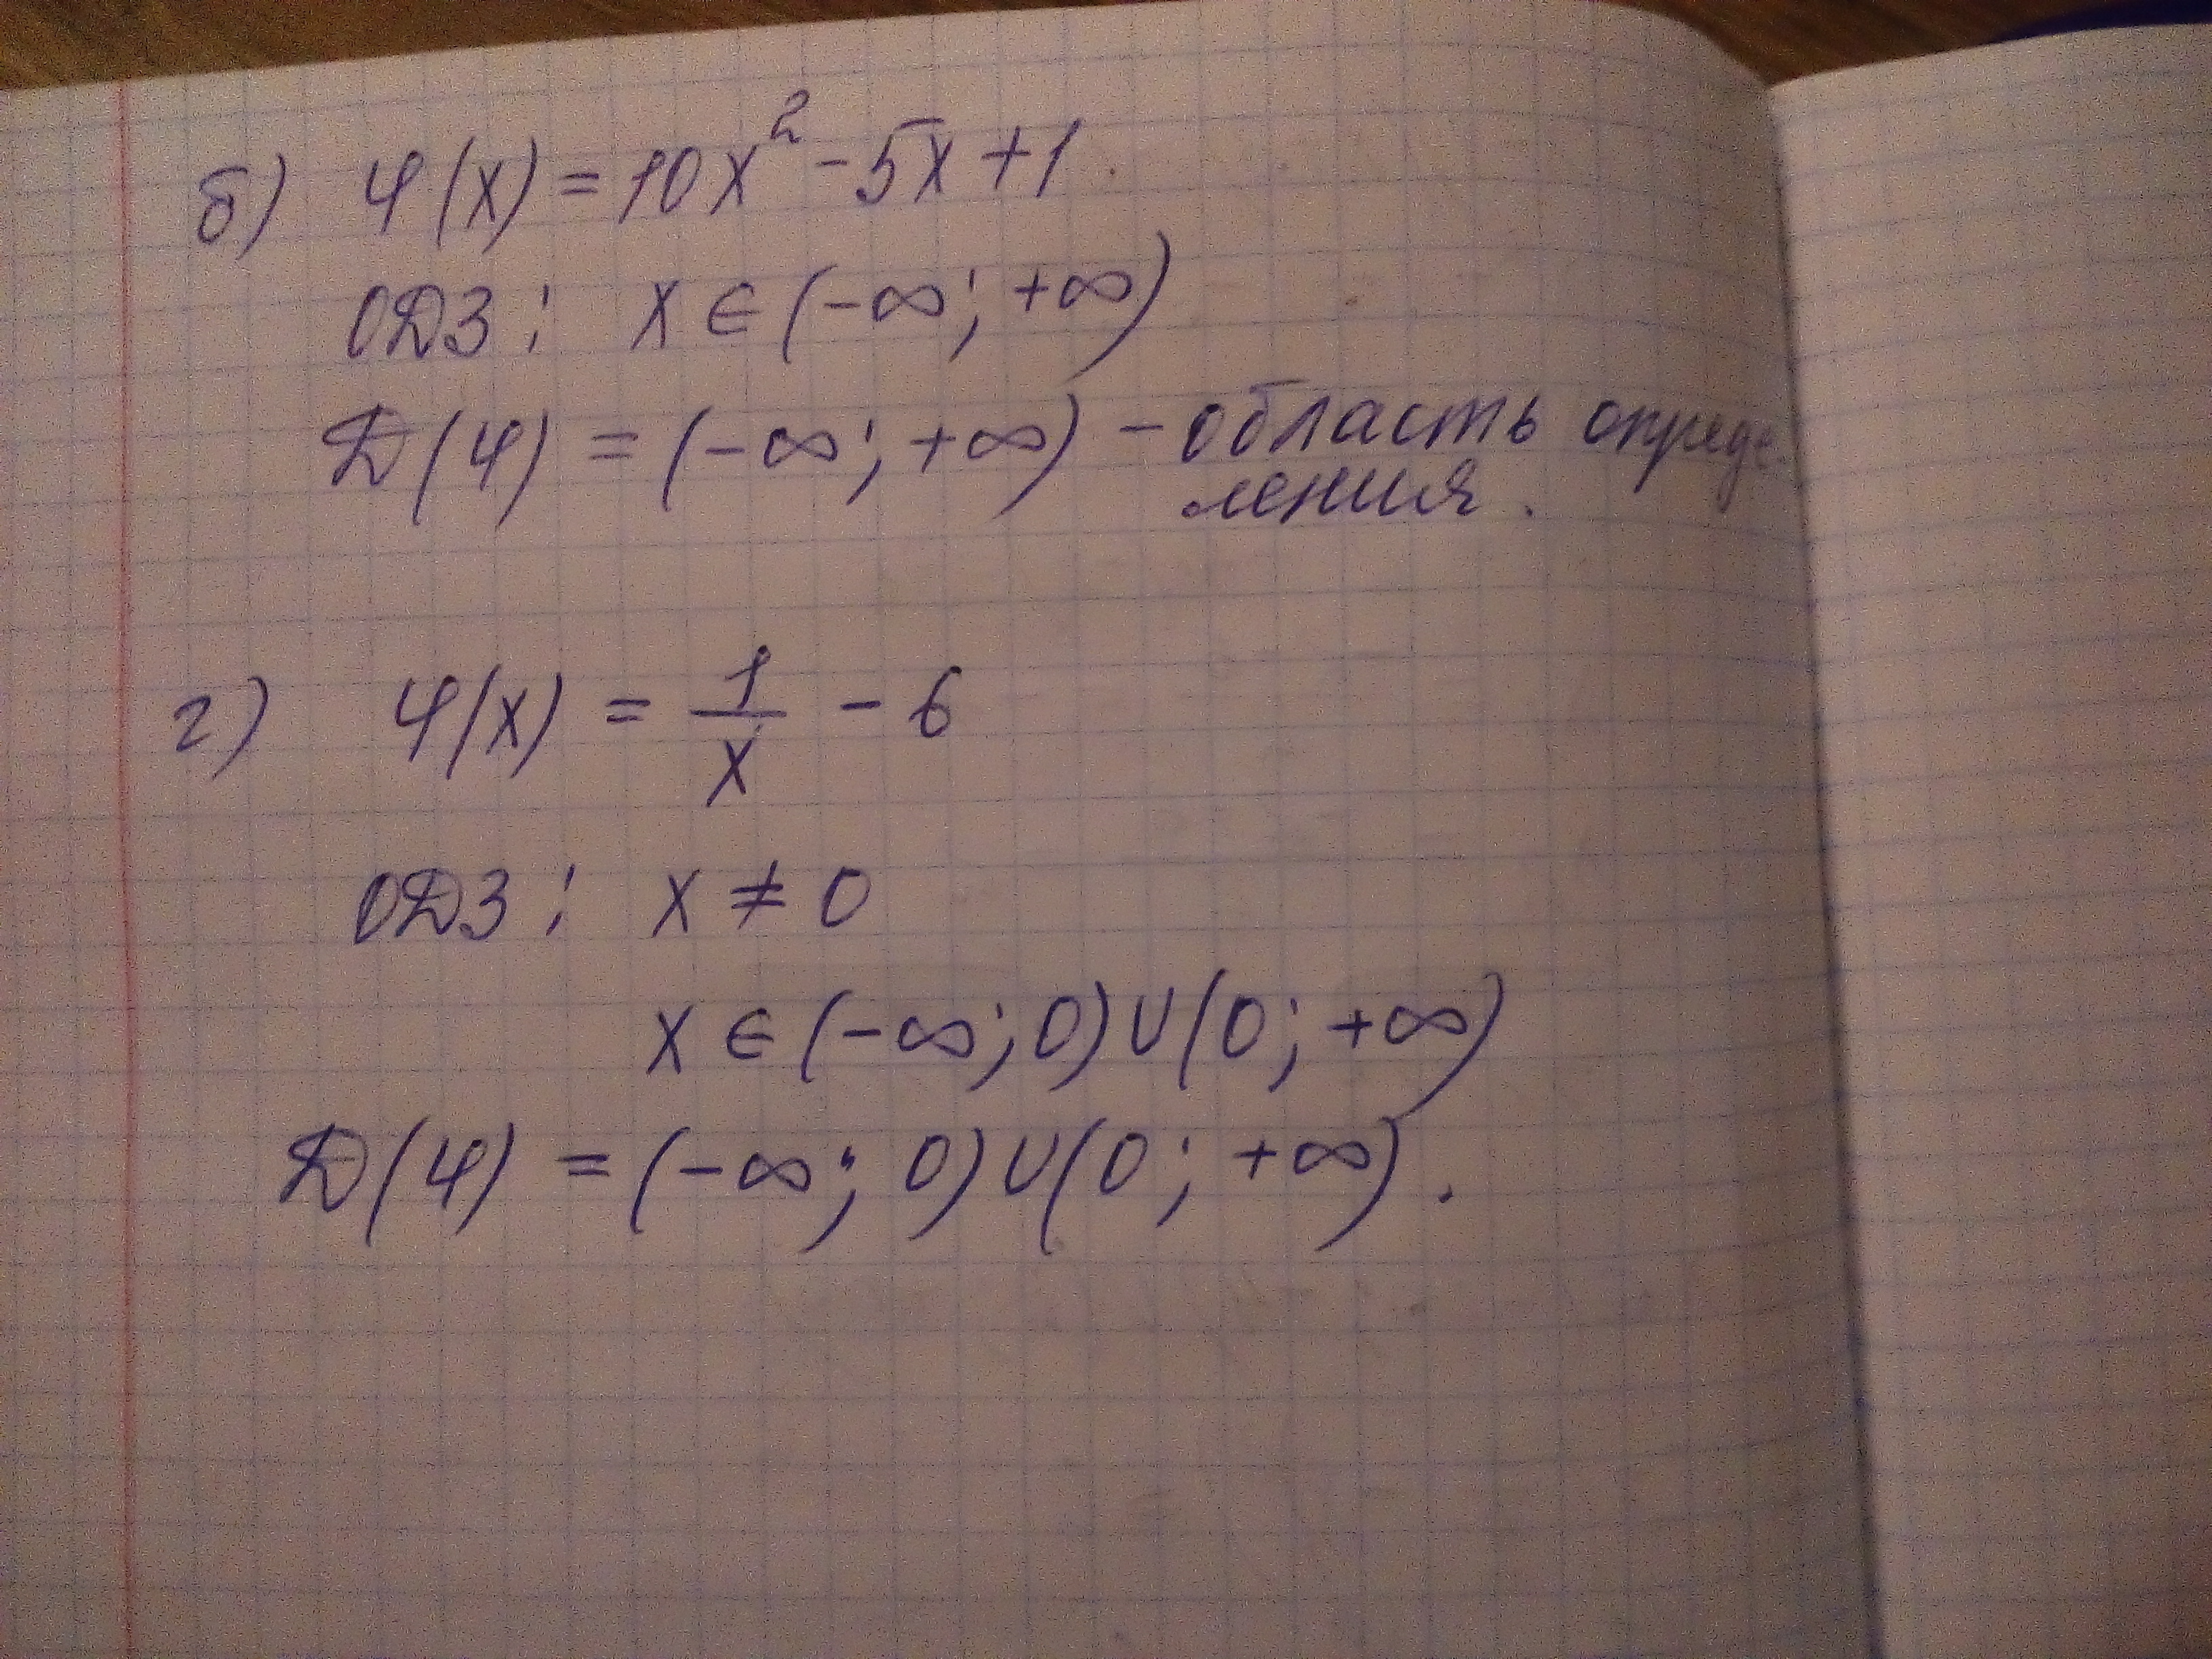 б) φ(x) = 10x² - 5x + 1.
ОДЗ: x ∈ (-∞; +∞)
Д(φ) = (-∞; +∞) - область опреде-
ления.
г) φ(x) = 1/x - 6
ОДЗ: x ≠ 0
x ∈ (-∞; 0) ∪ (0; +∞)
Д(φ) = (-∞; 0) ∪ (0; +∞).